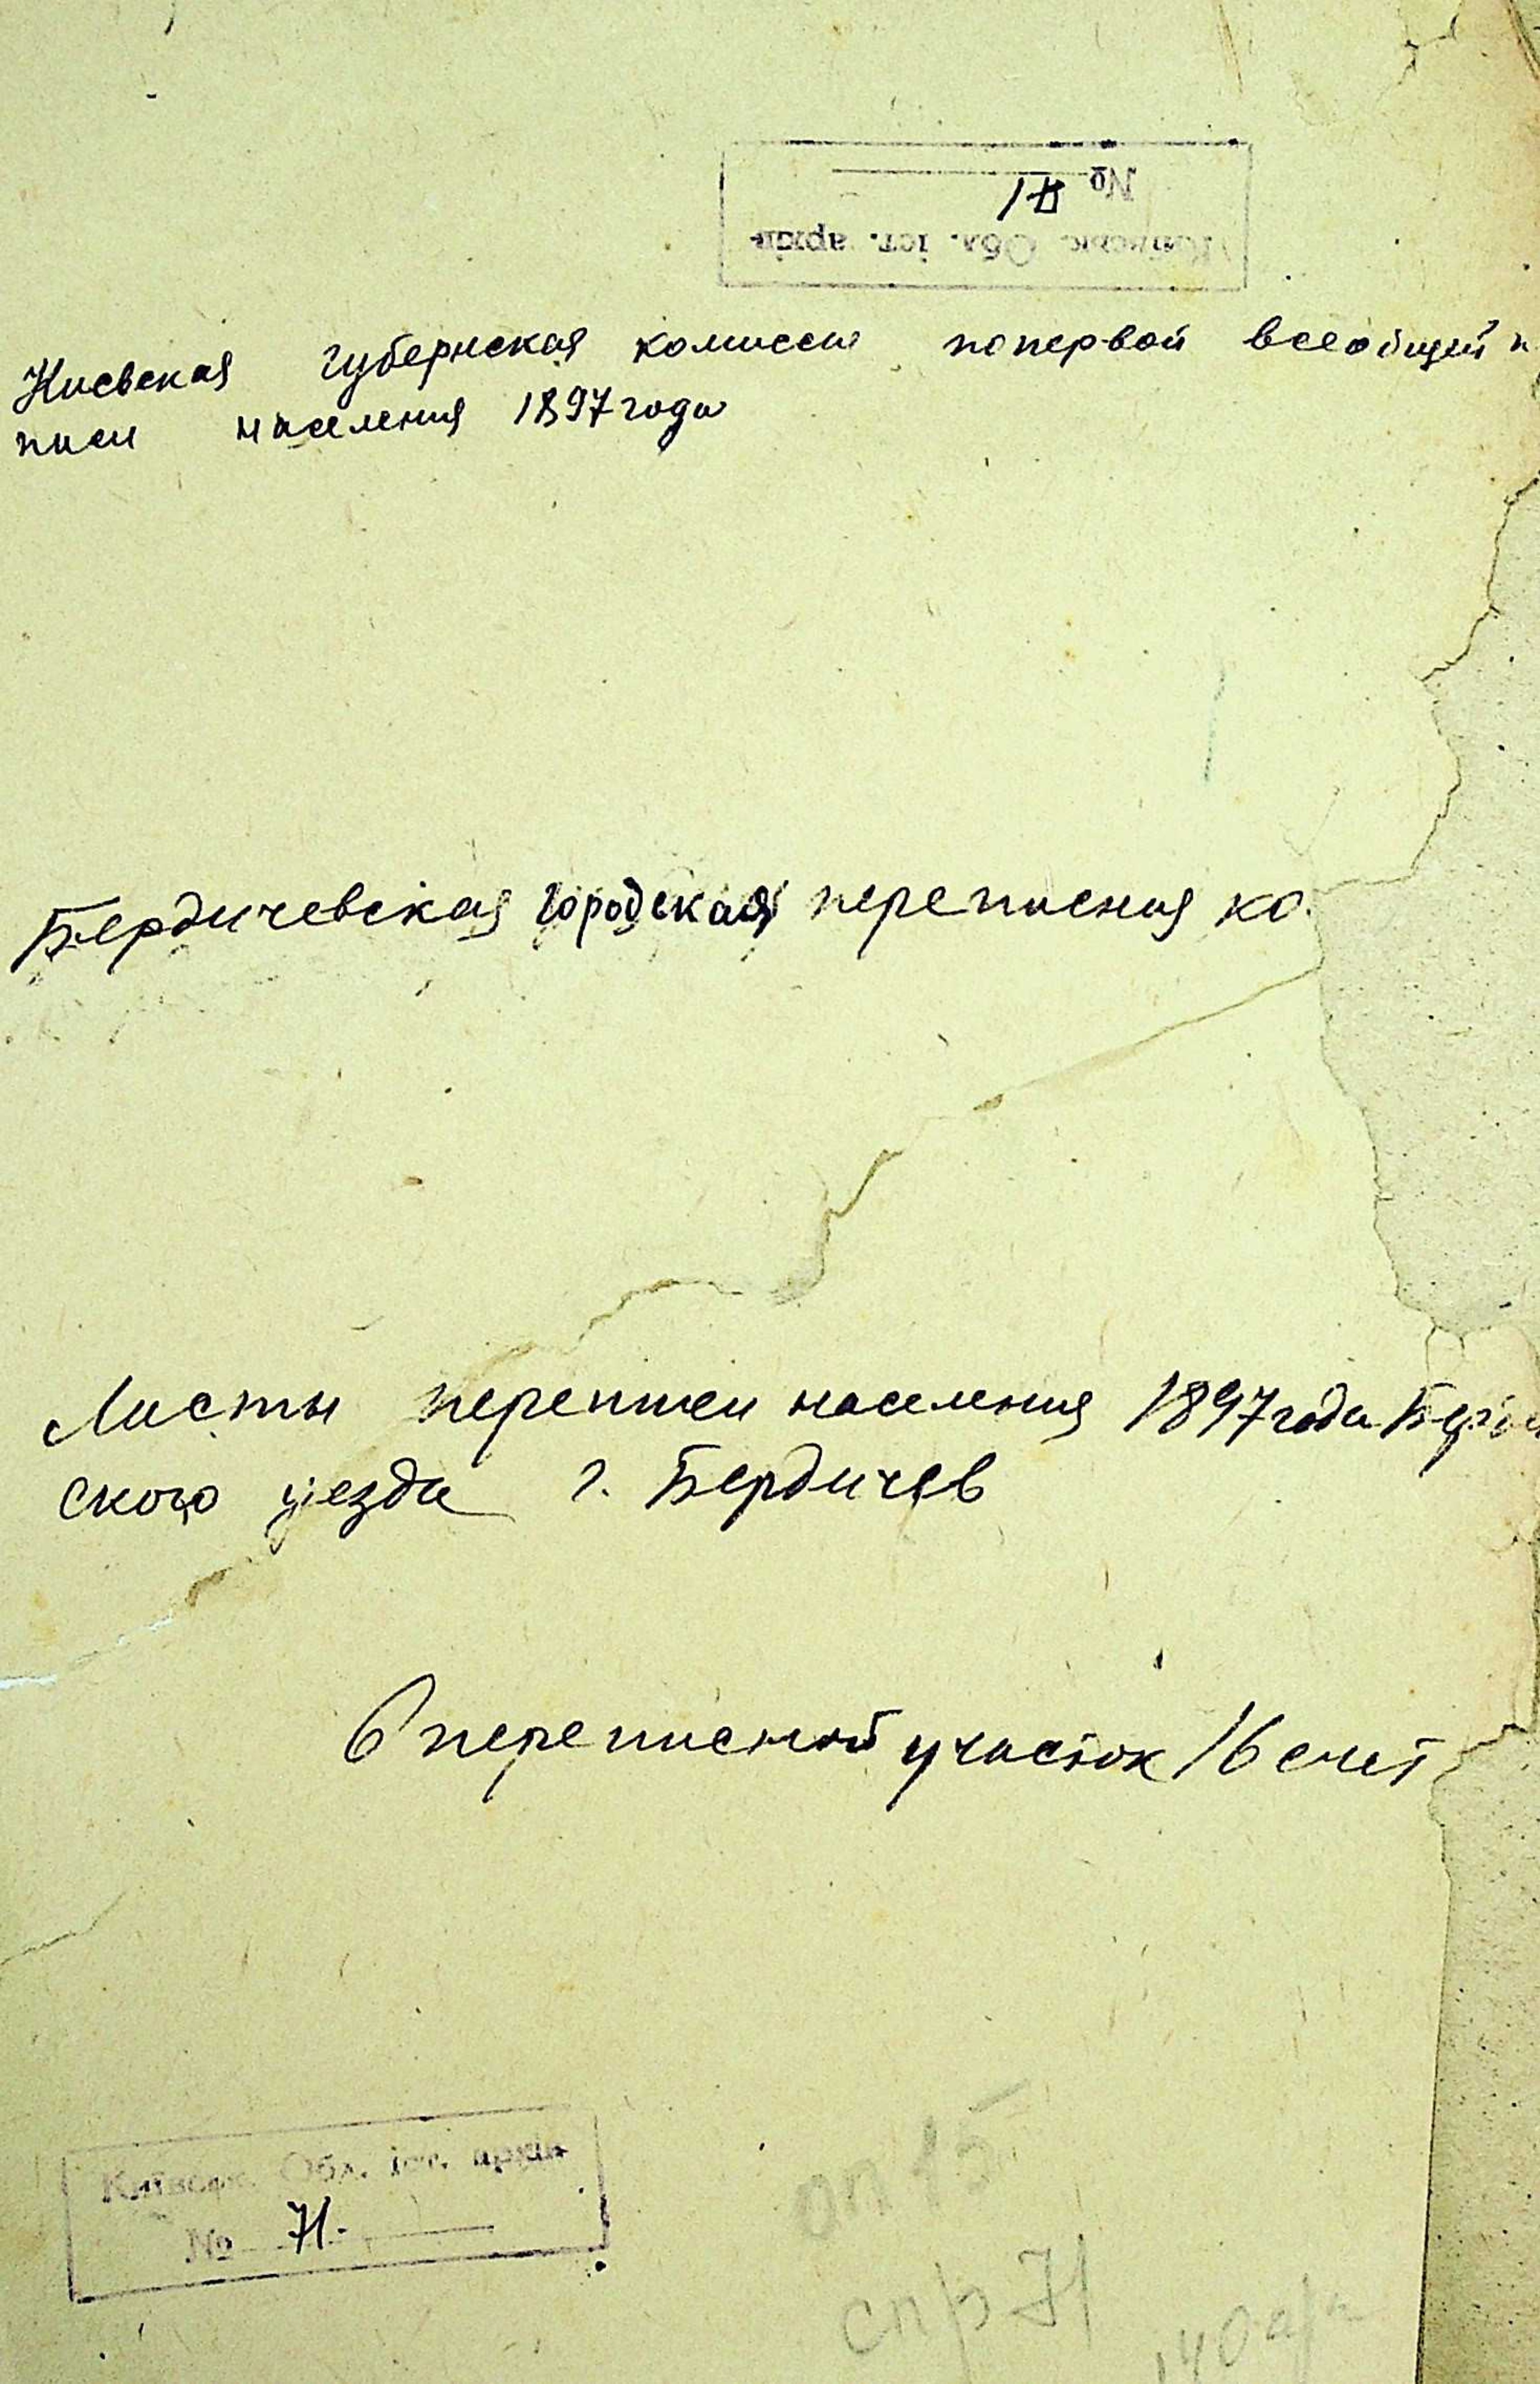 № 
Київськ. Обл. іст. архів
Киевская губернская комиссия попервой всеобщий п
писи населения 1897 года
Бердичевская городская переписная ко
Листы переписи населения 1897 года Берди
ского уезда г. Бердичев
6 переписной участок 16 счет
Київськ. Обл. іст. архів
№ 71.
оп 15
спр 71
140 арк